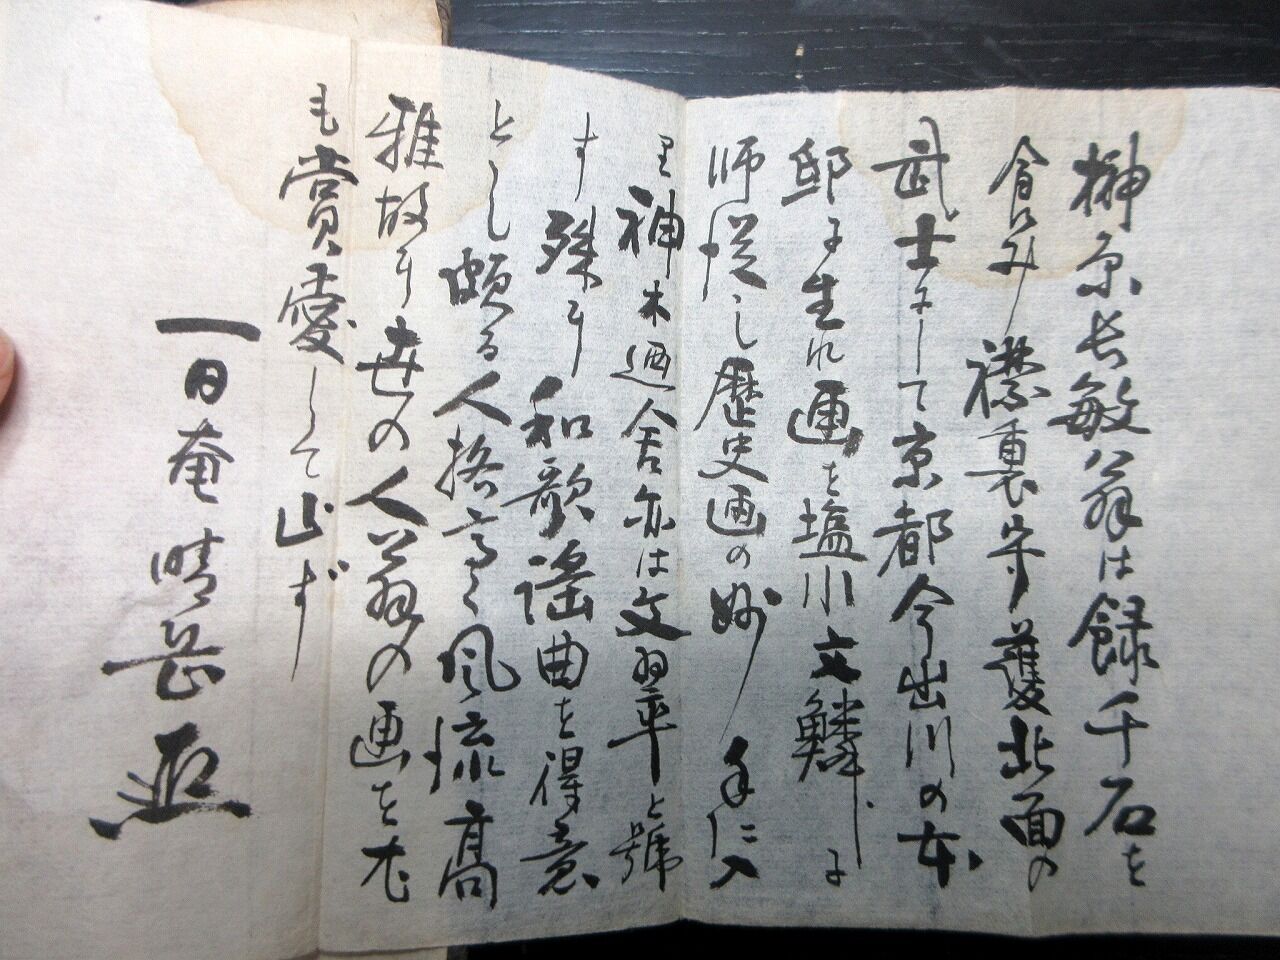 榊原長敏翁は録千石を
食み襟裏守護北面の
武士にして京都今出川の本
邸に生れ画を塩川文鱗に
師従し歴史画の妙手に入
り神木廼舎亦は文翠と號
す殊に和歌謡曲を得意
とし頗る人格高く風流高
雅故に世の人翁の画を尤
も賞愛して止ず
一日庵晴岳